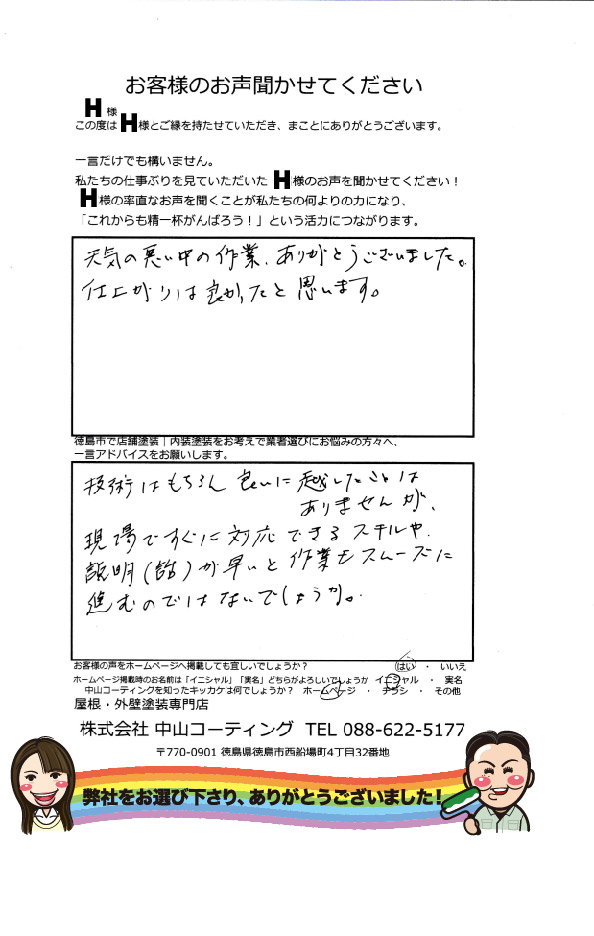 お客様のお声聞かせてください
H 様
この度は H 様とご縁を持たせていただき、まことにありがとうございます。
一言だけでも構いません。
私たちの仕事ぶりを見ていただいた H 様のお声を聞かせてください！
H 様の率直なお声を聞くことが私たちの何よりの力になり、
「これからも精一杯がんばろう！」という活力につながります。
天気の悪い中の作業、ありがとうございました。
仕上がりは良かったと思います。
徳島市で店舗塗装｜内装塗装をお考えで業者選びにお悩みの方々へ、
一言アドバイスをお願いします。
技術はもちろん良いに越したことは
ありませんが、
現場ですぐに対応できるスキルや、
説明(話)が早いと作業もスムーズに
進むのではないでしょうか。
お客様の声をホームページへ掲載しても宜しいでしょうか？ はい ・ いいえ
ホームページ掲載時のお名前は「イニシャル」「実名」どちらがよろしいでしょうか イニシャル ・ 実名
中山コーティングを知ったキッカケは何でしょうか？ ホームページ ・ チラシ ・ その他
屋根・外壁塗装専門店
株式会社 中山コーティング TEL 088-622-5177
〒770-0901 徳島県徳島市西船場町4丁目32番地
弊社をお選び下さり、ありがとうございました！